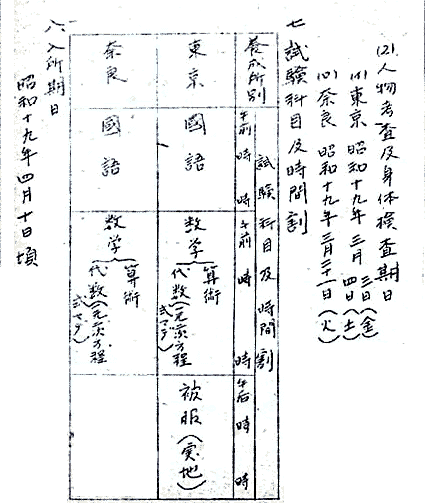 (2) 人物考査及身体検査期日
(イ) 東京 昭和十九年三月 三日(金) 四日(土)
(ロ) 奈良 昭和十九年三月二十一日(火)
七 試験科目及時間割
養成所別 試験科目及時間割
午前 時 時 午前 時 時 午后 時 時
東京 國語 数学 算術 代数(一元一次方程式マデ) 被服(実地)
奈良 國語 数学 算術 代数(一元一次方程式マデ)
八 入所期日
昭和十九年四月十日頃